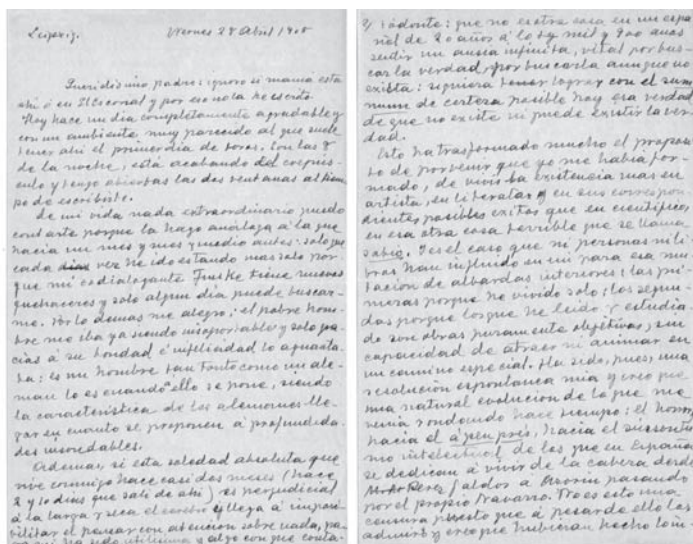 Leipzig. Viernes 28 Abril 1905
Queridísimo padre: ignoro si mamá está
ahí ó en El Escorial y por eso no la he escrito.
Hoy hace un día completamente agradable y
con un ambiente muy parecido al que suele
tener ahí el primer día de toros. Son las 8
de la noche, está acabando del crepús-
culo y tengo abiertas las dos ventanas al tiem-
po de escribirte.
De mi vida nada extraordinario puedo
contarte porque la hago análoga á la que
hacía un mes y mes y medio antes: solo que
cada vez he ido estando mas solo por-
que mi codialogante Funke tiene nuevos
quehaceres y solo algun dia puede buscar-
me. Por lo demas me alegro: el pobre hom-
bre me iba ya siendo insoportable y solo gra-
cias á su bondad é infelicidad lo aguanta-
ba: es un hombre tan tonto como un ale-
man lo es cuando á ello se pone, siendo
la característica de los alemanes lle-
gar en cuanto se proponen á profundida-
des insondables.
Ademas, si esta soledad absoluta que
vive conmigo hace casi dos meses (hace
2 y 10 dias que salí de ahí) es perjudicial
á la larga y seca el cerebro y llega á imposi-
bilitar el pensar con atención sobre nada, pa-
ra mí ha sido utilísima y algo con que conta-
2) ródonte: que no es otra cosa en un espa-
ñol de 20 años á los mil y 900 años
sentir un ansia infinita, vital por bus-
car la verdad, por buscarla aunque no
exista: siquiera lograr con el sum-
mum de certeza posible hoy esa verdad
de que no existe ni puede existir la ver-
dad.
Esto ha trasformado mucho el propósi-
to de porvenir que yo me había for-
mado, de vivir la existencia mas en
artista, en literato y en sus correspon-
dientes posibles exitos que en científico,
en esa otra cosa terrible que se llama
sabio. Y es el caso que ni personas ni li-
bros han influido en mí para esa mu-
tacion de albardas interiores: las pri-
meras porque he vivido solo; los segun-
dos porque los que he leido y estudia-
do son obras puramente objetivas, sin
capacidad de atraer ni animar en
un camino especial. Ha sido, pues, una
resolución espontanea mia y creo que
una natural evolucion de lo que me
venía rondando hace tiempo: el horror
hacia el á peu près, hacia el
mo intelectual de los que en España
se dedican á vivir de la cabeza desde
Perez Galdos á Azorin pasando
por el propio Navarro. No es esto una
censura puesto que á pesar de ello los
admiro y creo que hubieran hecho